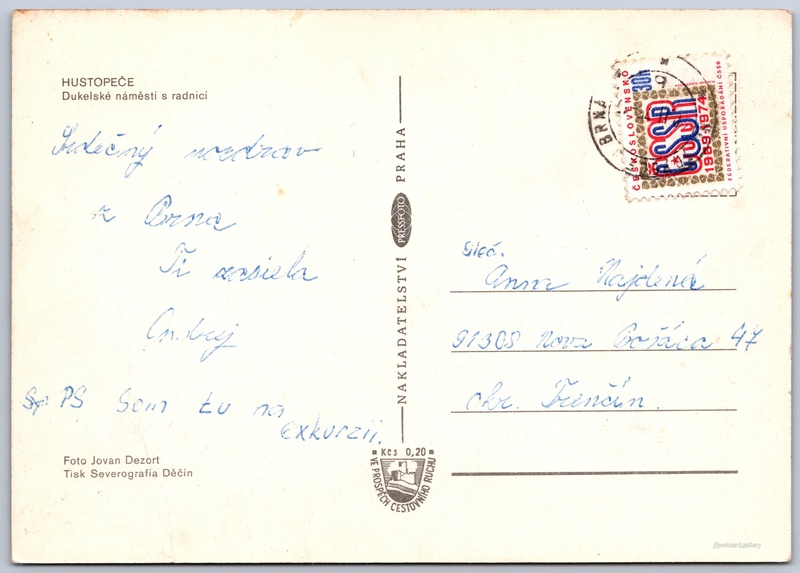 HUSTOPEČE
Dukelské náměstí s radnicí
Srdečný pozdrav
z Brna
Ti zasiela
Ondrej
PS Som tu na
exkurzii.
Foto Jovan Dezort
Tisk Severografia Děčín
NAKLADATELSTVÍ PRESSFOTO PRAHA
Kčs 0,20
VE PROSPĚCH CESTOVNÍHO RUCHU
BRNA
ČESKOSLOVENSKO
30h
ČSSR
1969-1974
FEDERATIVNÍ USPOŘÁDÁNÍ ČSSR
Anna Najdená
91308 Nova Bošáca 47
okr. Trenčín.